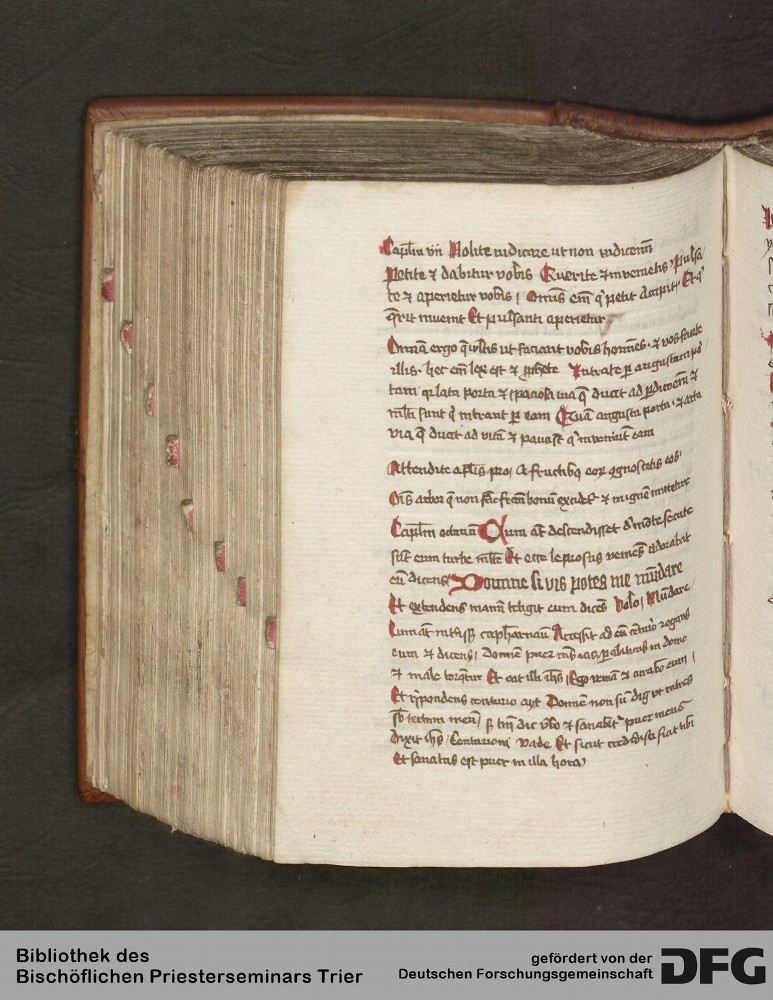 Capl̄m vii Nolite iudicare ut non iudicem̄
Petite ⁊ dabitur vobis Querite ⁊ invenietis Pulsa
te ⁊ aperietur vobis Omnis em̄ q̇ petit Accipit Et q̇
q̄rit invenit Et pulsanti aperietur
Omīa ergo q̄ vltis ut faciant vobis homēs ⁊ vos facite
illis hec em̄ lex est ⁊ ꝓphete Intrate ꝑ angustam por
tam q̇ lata porta ⁊ spaciosa via q̄ ducit ad ꝑdicōem̄ ⁊
ml̄ti sunt q̇ intrant ꝑ eam Quā angusta porta ⁊ arta
via q̄ ducit ad vitā ⁊ pauci st̄ q̇ inveniūt eam
Attendite a fl̄is pro A fructibꝰ eoꝝ ꝯgnoscetis eos
Oīs arbor q̄ non fac̄ fructū bonum excidet᷑ ⁊ in ignē mittetur
Capl̄m octavū Cum at̄ descendisset d̓ mōte secute
sūt eum turbe ml̄te Et ecce leprosus veniēs adorabat
eū dicens Domine si vis potes me mūdare
Et extendens manū tetigit eum dicēs Volo Mundare
Cum at̄ introisset capharnaū Accessit ad eū cēturio rogans
eum ⁊ dicens Domīe puer mꝰ iacꝫ ꝑaliticus in domo
⁊ male torq̄tur Et ait illi ihs̄ Ego veniā ⁊ curabo eum
Et rn̄pondens centurio ayt Domīe non sū dignꝰ ut intres
sb̄ tectum meū sꝫ tm̄ dic v̄bo ⁊ sanabit᷑ puer meus
Dixit ihs̄ Centurioni vade Et sicut credidisti fiat tibi
Et sanatus est puer in illa hora
Bibliothek des
Bischöflichen Priesterseminars Trier
gefördert von der
Deutschen Forschungsgemeinschaft
DFG